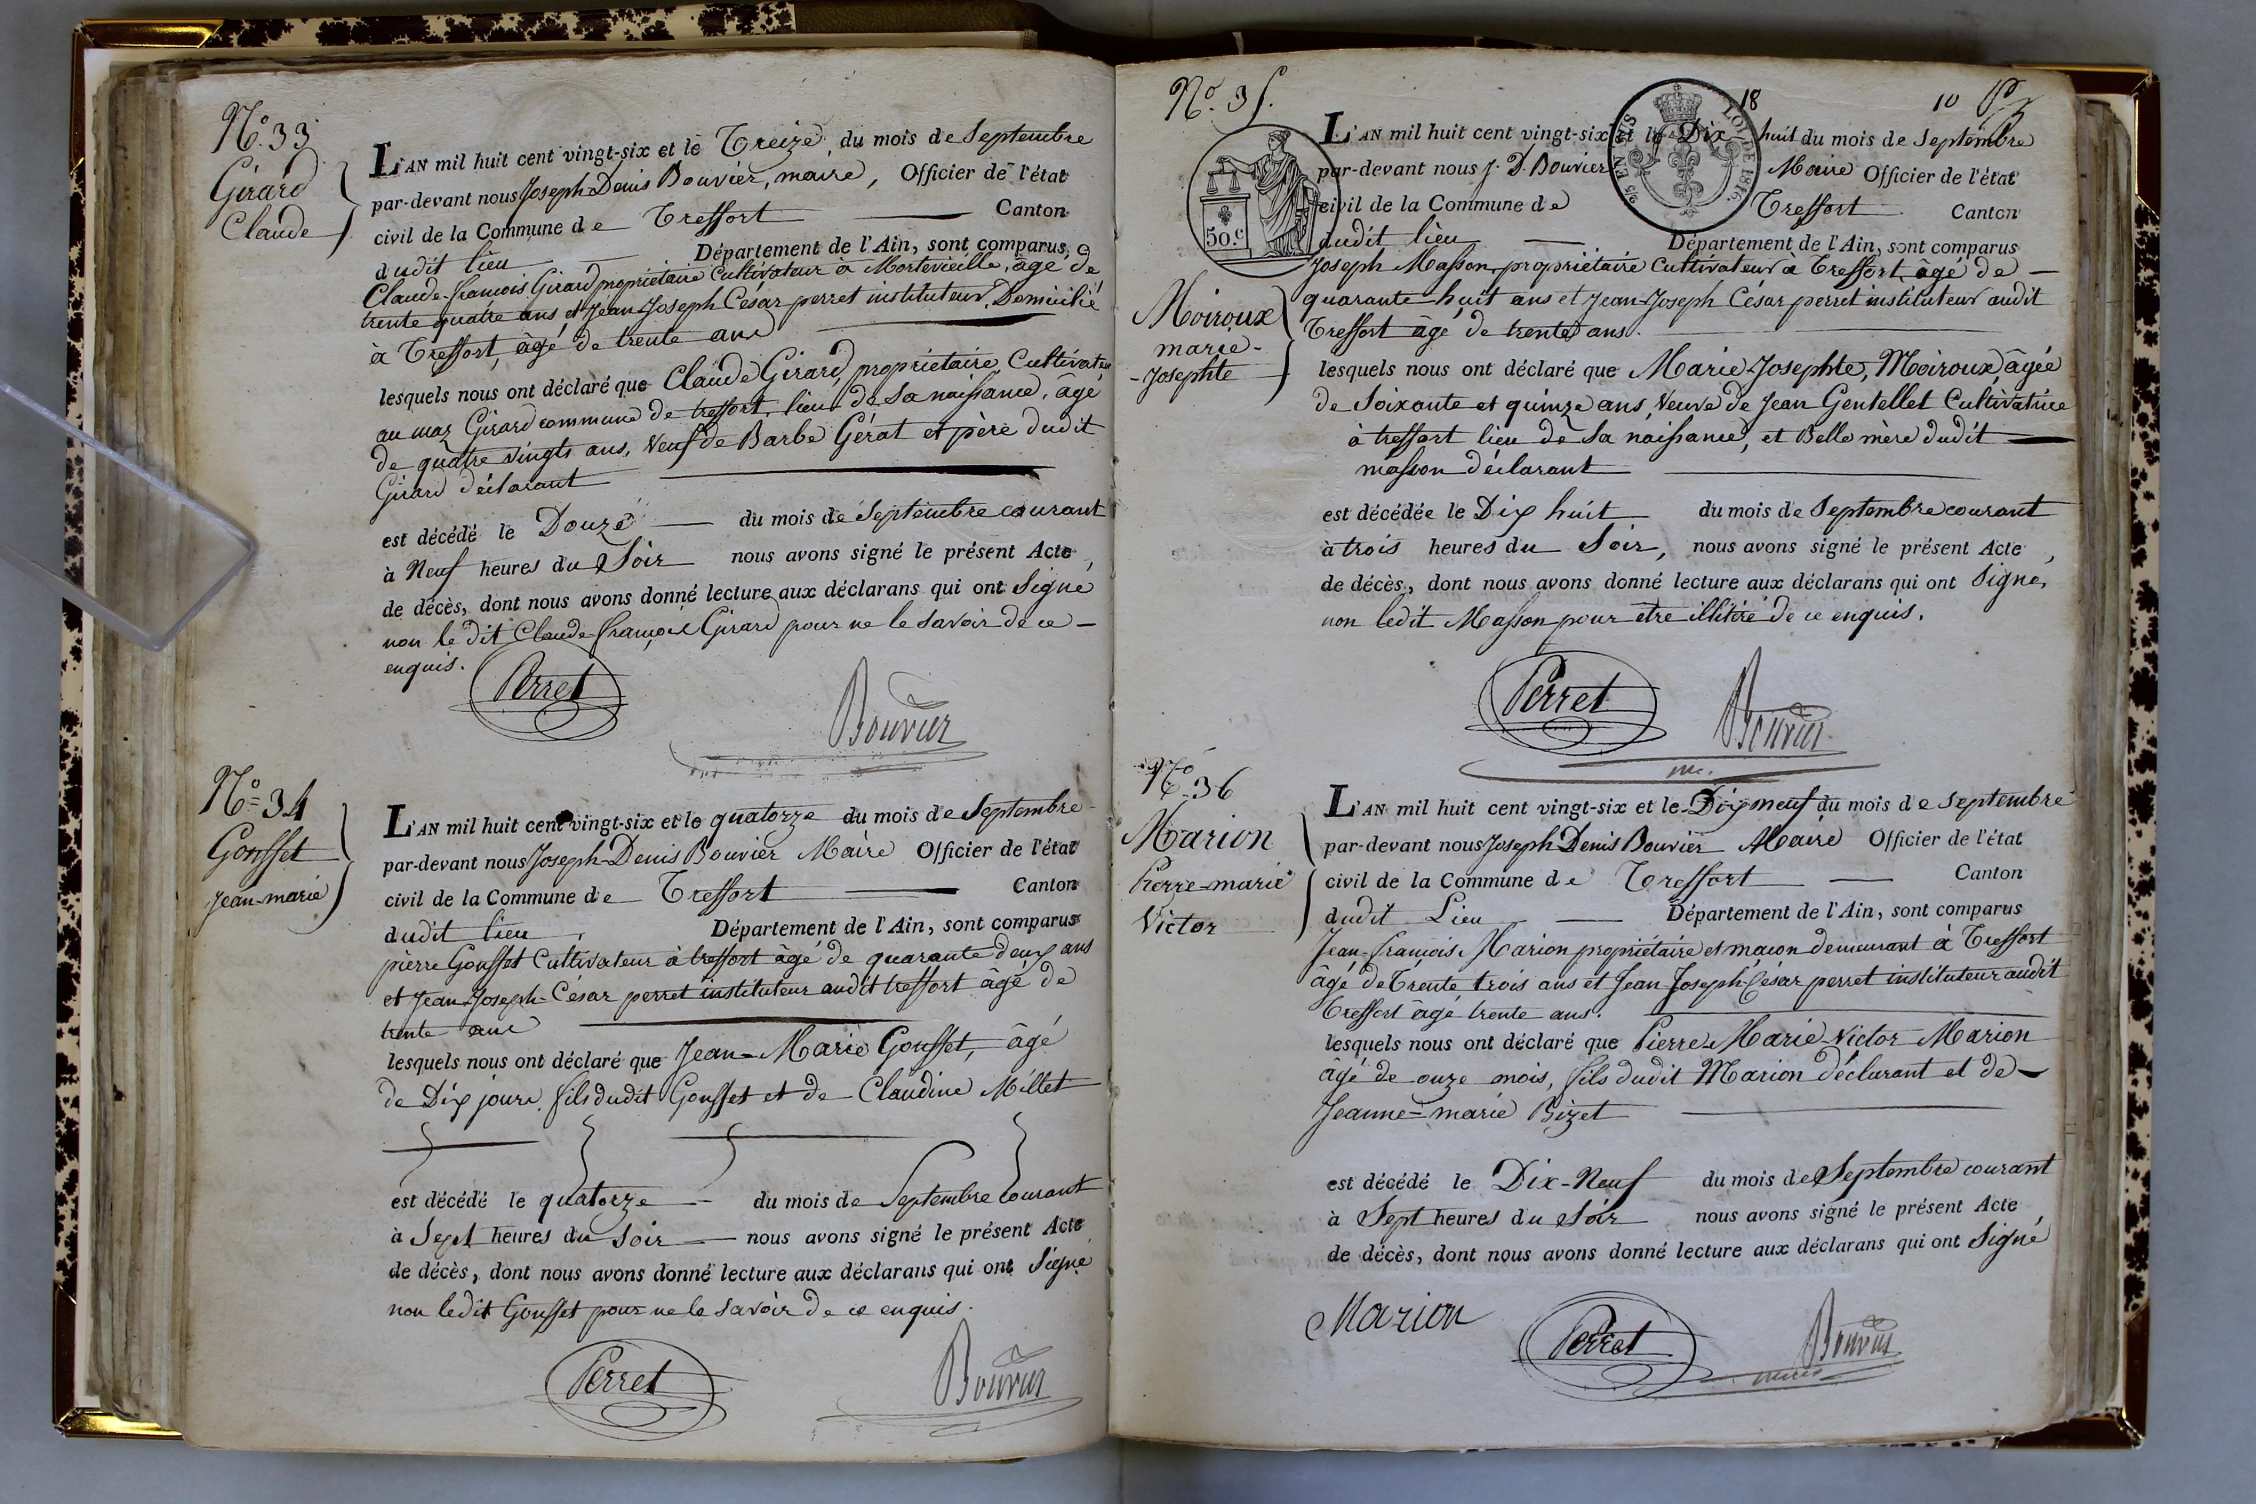 N.º 33
Girard
Claude
L'AN mil huit cent vingt-six et le Treize du mois de Septembre
par-devant nous Joseph-Denis Bouvier, maire, Officier de l'état
civil de la Commune de Treffort Canton
dudit lieu Département de l'Ain, sont comparus,
Claude-françois Girard propriétaire Cultivateur à Mortevieille, âgé de
trente quatre ans et Jean-Joseph César perret instituteur, Domicilié
à Treffort, âgé de trente ans
lesquels nous ont déclaré que Claude Girard, propriétaire, Cultivateur
au maz Girard commune de treffort, lieu de sa naissance, âgé
de quatre vingts ans, Veuf de Barbe Gérat et père dudit
Girard déclarant
est décédé le Douze du mois de Septembre courant
à Neuf heures du Soir nous avons signé le présent Acte,
de décès, dont nous avons donné lecture aux déclarans qui ont Signé
non le dit Claude françois Girard pour ne le savoir de ce
enquis.
Perret
Bouvier
N.º 34
Gousset
Jean-marie
L'AN mil huit cent vingt-six et le quatorze du mois de Septembre
par-devant nous Joseph-Denis Bouvier Maire Officier de l'état
civil de la Commune de Treffort Canton
dudit lieu, Département de l'Ain, sont comparus
pierre Gousset Cultivateur à treffort âgé de quarante deux ans
et Jean-Joseph-César perret instituteur audit treffort âgé de
trente ans
lesquels nous ont déclaré que Jean-Marie Gousset, âgé
de Dix jours, fils dudit Gousset et de Claudine Millet
est décédé le quatorze du mois de Septembre courant
à Sept heures du Soir nous avons signé le présent Acte
de décès, dont nous avons donné lecture aux déclarans qui ont Signé
non ledit Gousset pour ne le savoir de ce enquis.
Perret
Bouvier
N.º 35.
18
10
50.c
LOI DE 1816
25 EN SUS
Moiroux
marie-
-Josephte
L'AN mil huit cent vingt-six et le Dix-huit du mois de Septembre
par-devant nous J. D. Bouvier Maire Officier de l'état
civil de la Commune de Treffort Canton
dudit lieu Département de l'Ain, sont comparus
Joseph Masson, propriétaire Cultivateur à Treffort, âgé de
quarante-huit ans et Jean-Joseph César perret instituteur audit
Treffort âgé de trente ans.
lesquels nous ont déclaré que Marie-Josephte, Moiroux, âgée
de Soixante et quinze ans, Veuve de Jean Gentellet Cultivatrice
à treffort lieu de sa naissance, et Belle mère dudit
masson déclarant
est décédée le Dix huit du mois de Septembre courant
à trois heures du Soir, nous avons signé le présent Acte,
de décès, dont nous avons donné lecture aux déclarans qui ont Signé,
non ledit Masson pour etre illitiré de ce enquis.
Perret
Bouvier
N.º 36
Marion
Pierre-marie
Victor
L'AN mil huit cent vingt-six et le Dix neuf du mois de septembre
par-devant nous Joseph Denis Bouvier Maire Officier de l'état
civil de la Commune de Treffort Canton
dudit Lieu Département de l'Ain, sont comparus
Jean-françois Marion propriétaire et maçon demeurant à Treffort
âgé de Trente trois ans et Jean Joseph César perret instituteur audit
Treffort âgé trente ans.
lesquels nous ont déclaré que Pierre Marie Victor Marion
âgé de onze mois, fils dudit Marion déclarant et de
Jeanne-marie Bizet
est décédé le Dix-Neuf du mois de Septembre courant
à Sept heures du Soir nous avons signé le présent Acte
de décès, dont nous avons donné lecture aux déclarans qui ont Signé
Marion
Perret
Bouvier